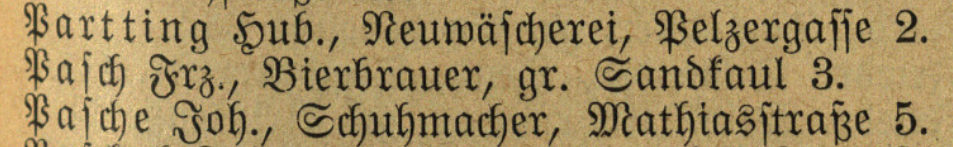 Partting Hub., Neuwäscherei, Pelzergasse 2.
Pasch Frz., Bierbrauer, gr. Sandkaul 3.
Pasche Joh., Schuhmacher, Mathiasstraße 5.